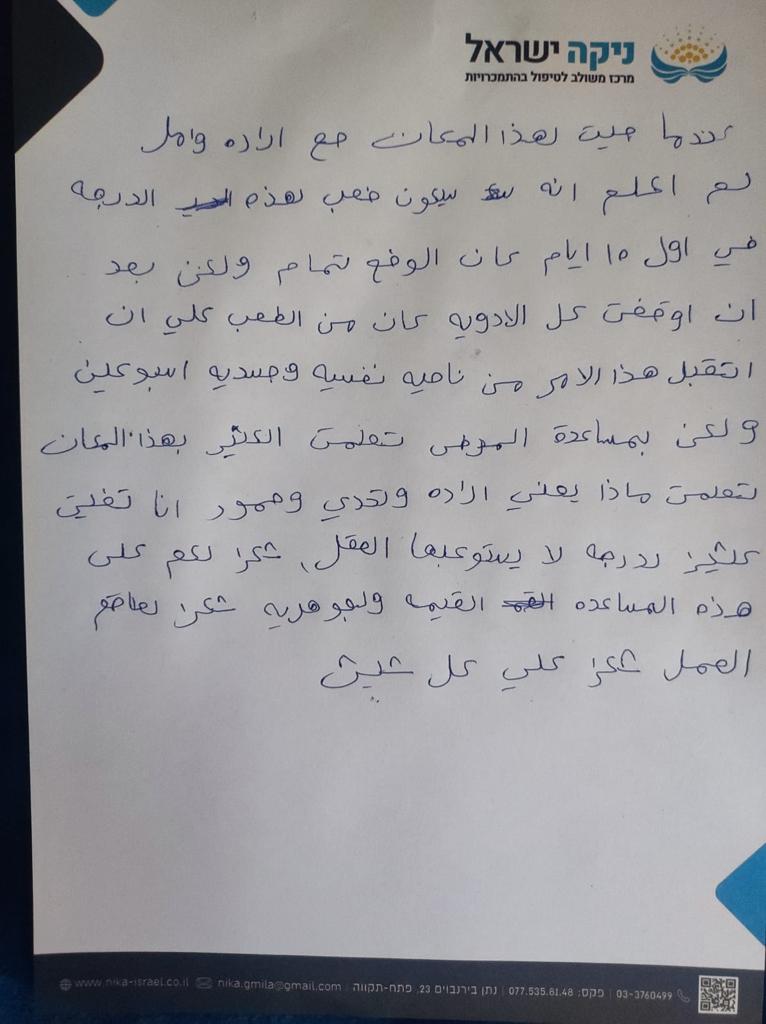 ניקה ישראל
מרכז משולב לטיפול בהתמכרויות
عندما جيت لهذا المكان مع اراده وامل
لم اعلم انه سيكون صعب لهذه الدرجه
في اول 10 ايام كان الوضع تمام ولكن بعد
ان اوقفت كل الادويه كان من الصعب علي ان
اتقبل هذا الامر من ناحيه نفسيه وجسديه اسبوعين
ولكن بمساعدة تعلمت الكثير بهذا المكان
تعلمت ماذا يعني اراده وتحدي وصمود انا تغليت
كثير لدرجه لا يستوعبها العقل, شكرا لكم على
هذه المساعده القيمه والجوهريه شكرا لطاقم
العمل شكرا علي كل شيئ
www.nika-israel.co.il nika.gmila@gmail.com | נתן בירנבוים 23, פתח-תקווה | פקס: 077.535.81.48 | 03-3760499